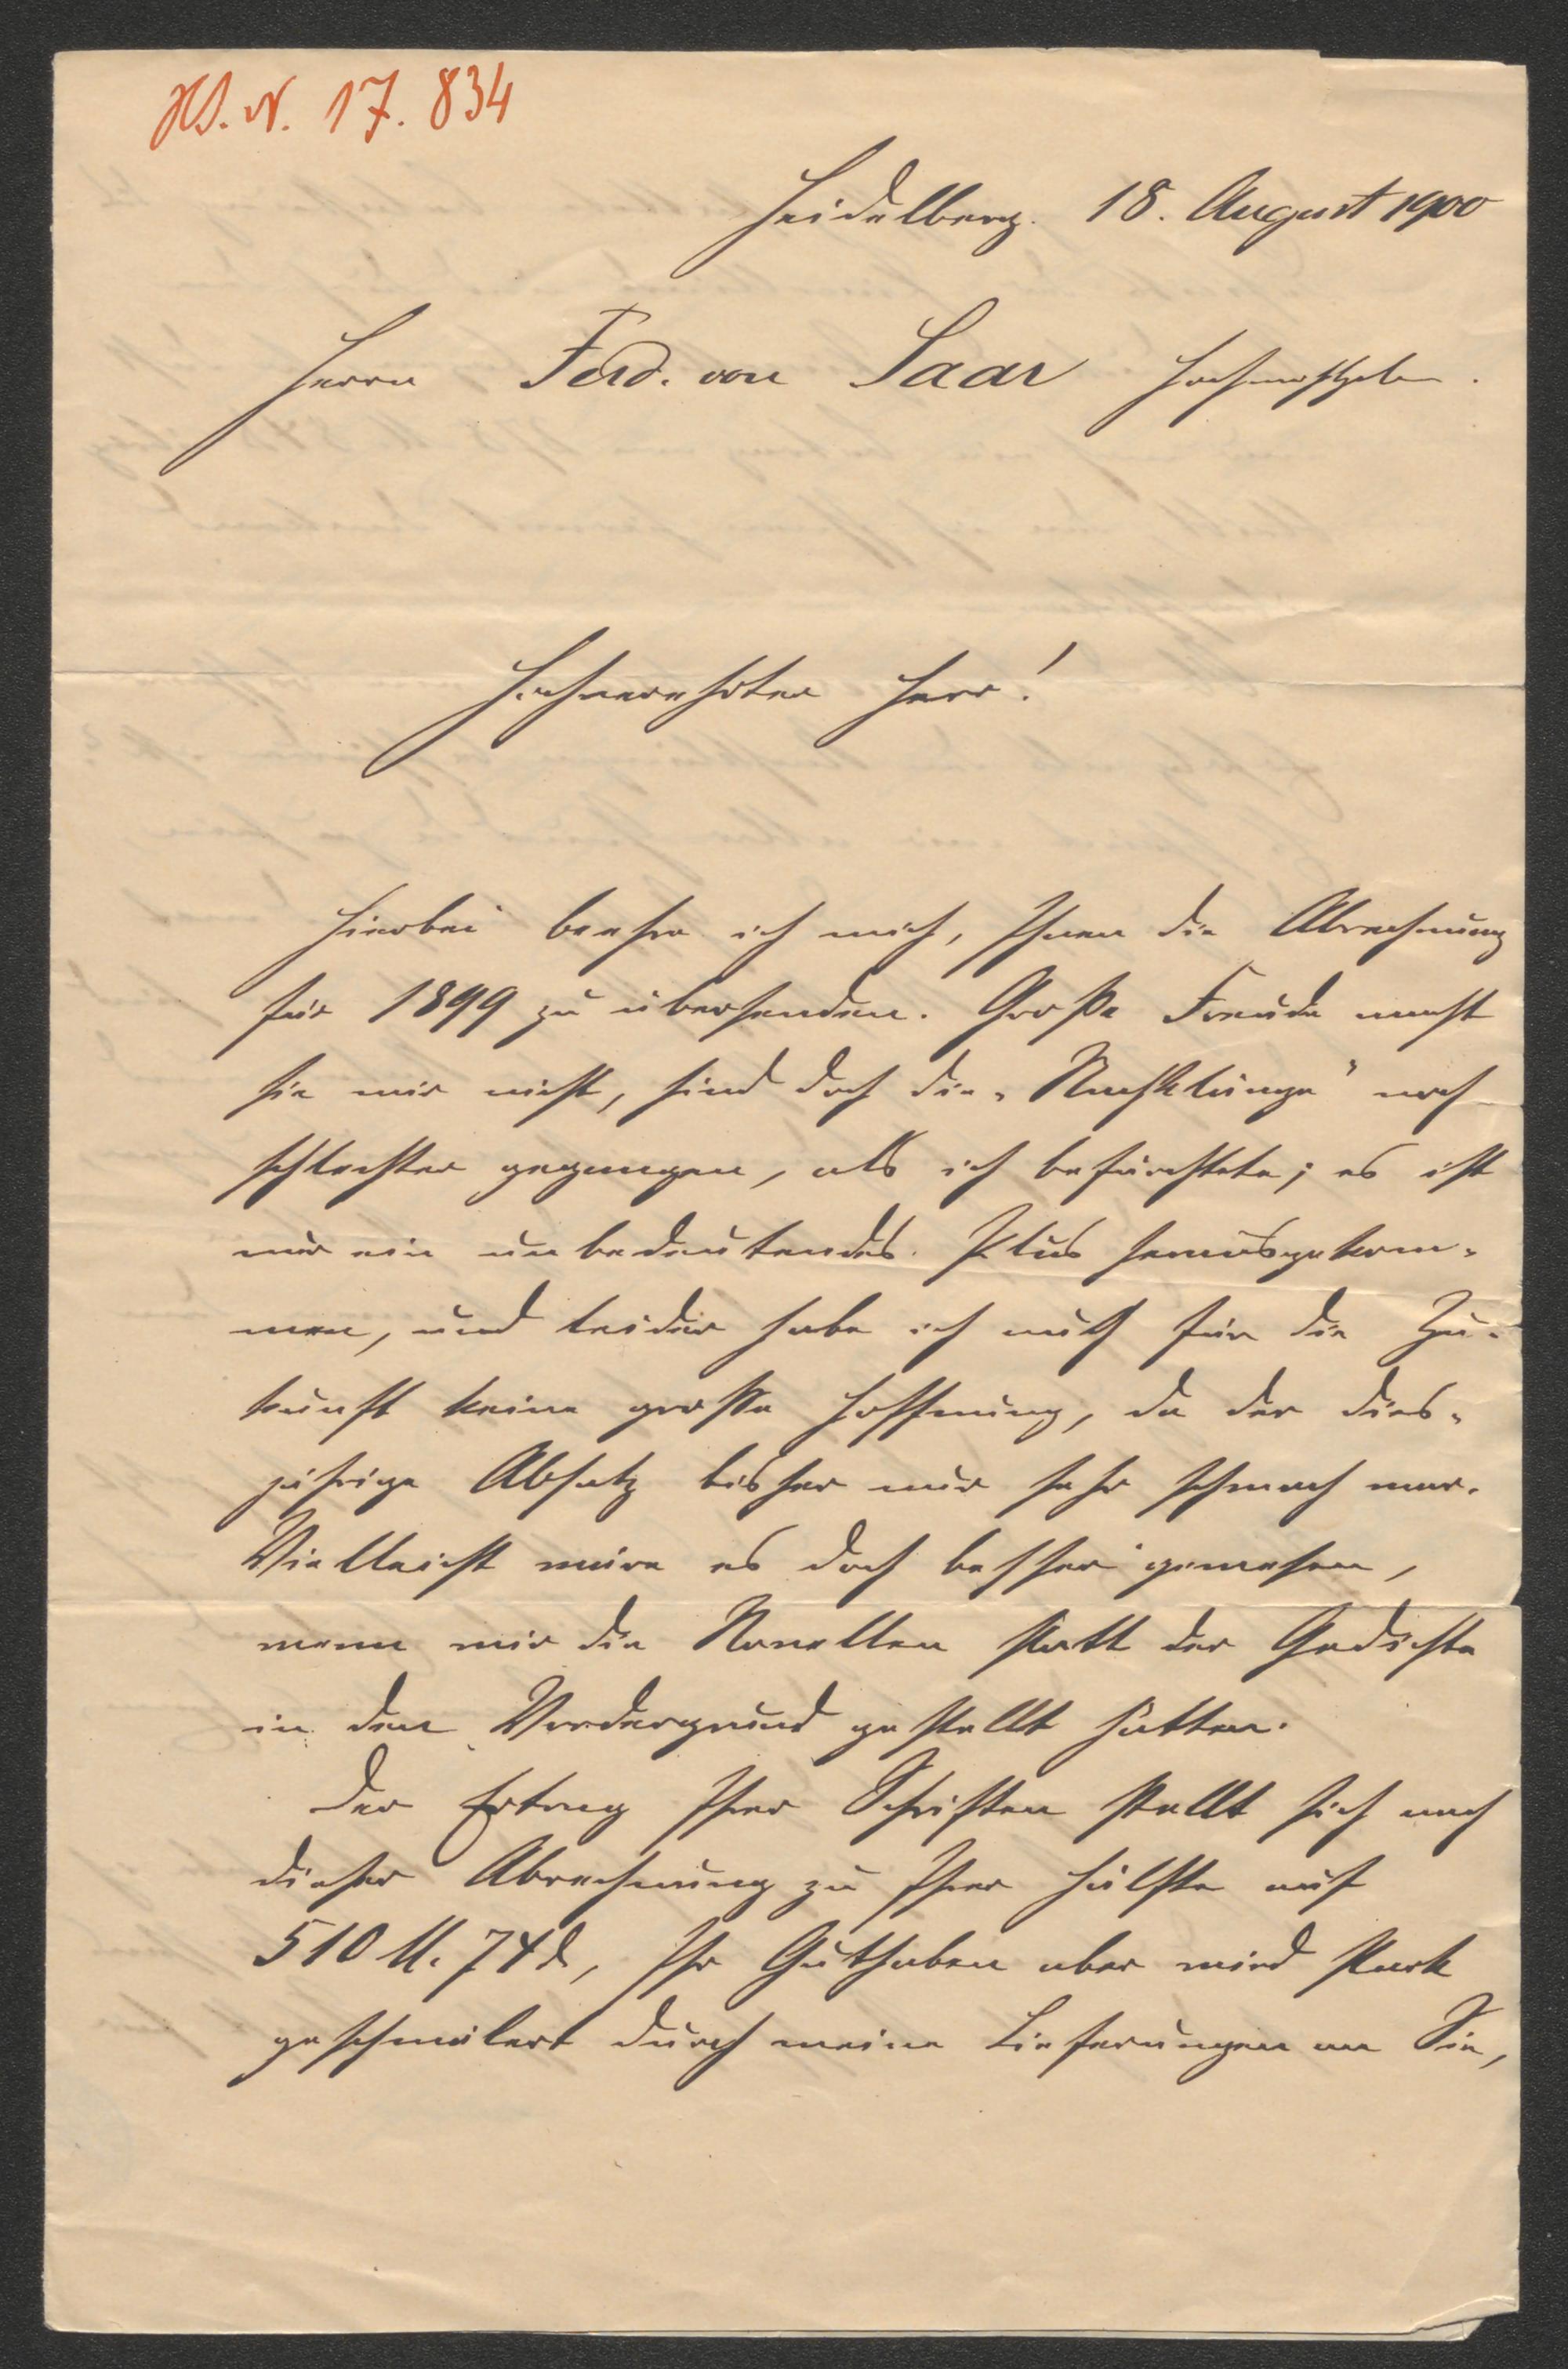 H.I.N. 17.834
Heidelberg. 18. August 1900
Herrn Ferd. von Saar Hochwohlgeb.
Hochverehrter Herr!
Hierbei beehre ich mich, Ihnen die Abrechnung
für 1899 zu übersenden. Große Freude macht
sie mir nicht, sind doch die „Nachklänge" noch
schlechter gegangen, als ich befürchtete; es ist
nur ein unbedeutendes Plus herausgekom-
men, und leider habe ich auch für die Zu-
kunft keine große Hoffnung, da der dies-
jährige Absatz bisher nur sehr schwach war.
Vielleicht wäre es doch besser gewesen,
wenn wir die Novellen statt der Gedichte
in den Vordergrund gestellt hätten.
Der Ertrag Ihrer Schriften stellt sich nach
dieser Abrechnung zu Ihrer Hälfte auf
510 M. 74 d, Ihr Guthaben aber wird stark
geschmälert durch meine Lieferungen an Sie,